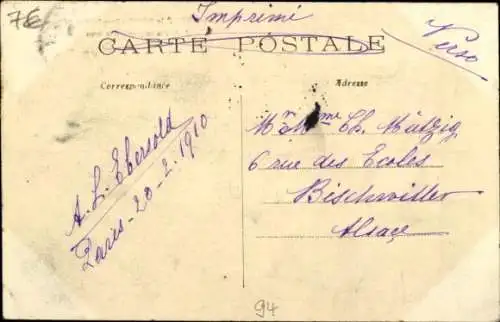 7€
Imprimé
Verso
CARTE POSTALE
Correspondance
Adresse
A. L. Ebersold
Paris - 20-2. 1910
Mr Mme Ch. Mützig
6 rue des Ecoles
Bischwiller
Alsace
94